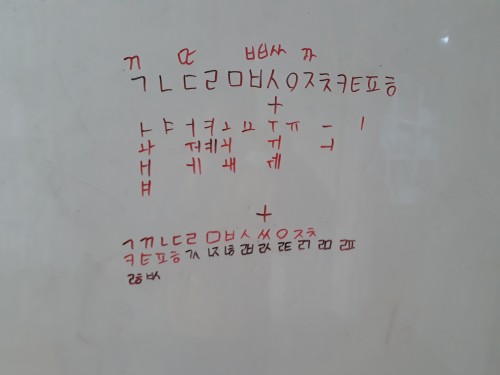 ㄲ ㄸ ㅃㅆ ㅉ
ㄱㄴㄷㄹㅁㅂㅅㅇㅈㅊㅋㅌㅍㅎ
+
ㅏ ㅑ ㅓㅕㅗㅛㅜㅠ ㅡ ㅣ
ㅘ ㅝㅖㅚ ㅟ ㅢ
ㅐ ㅔ ㅙ ㅞ
ㅒ
+
ㄱㄲㄴㄷㄹㅁㅂㅅㅆㅇㅈㅊ
ㅋㅌㅍㅎㄳㄵㄶㄼㄽㄾㄺㄻㄿ
ㅀㅄ